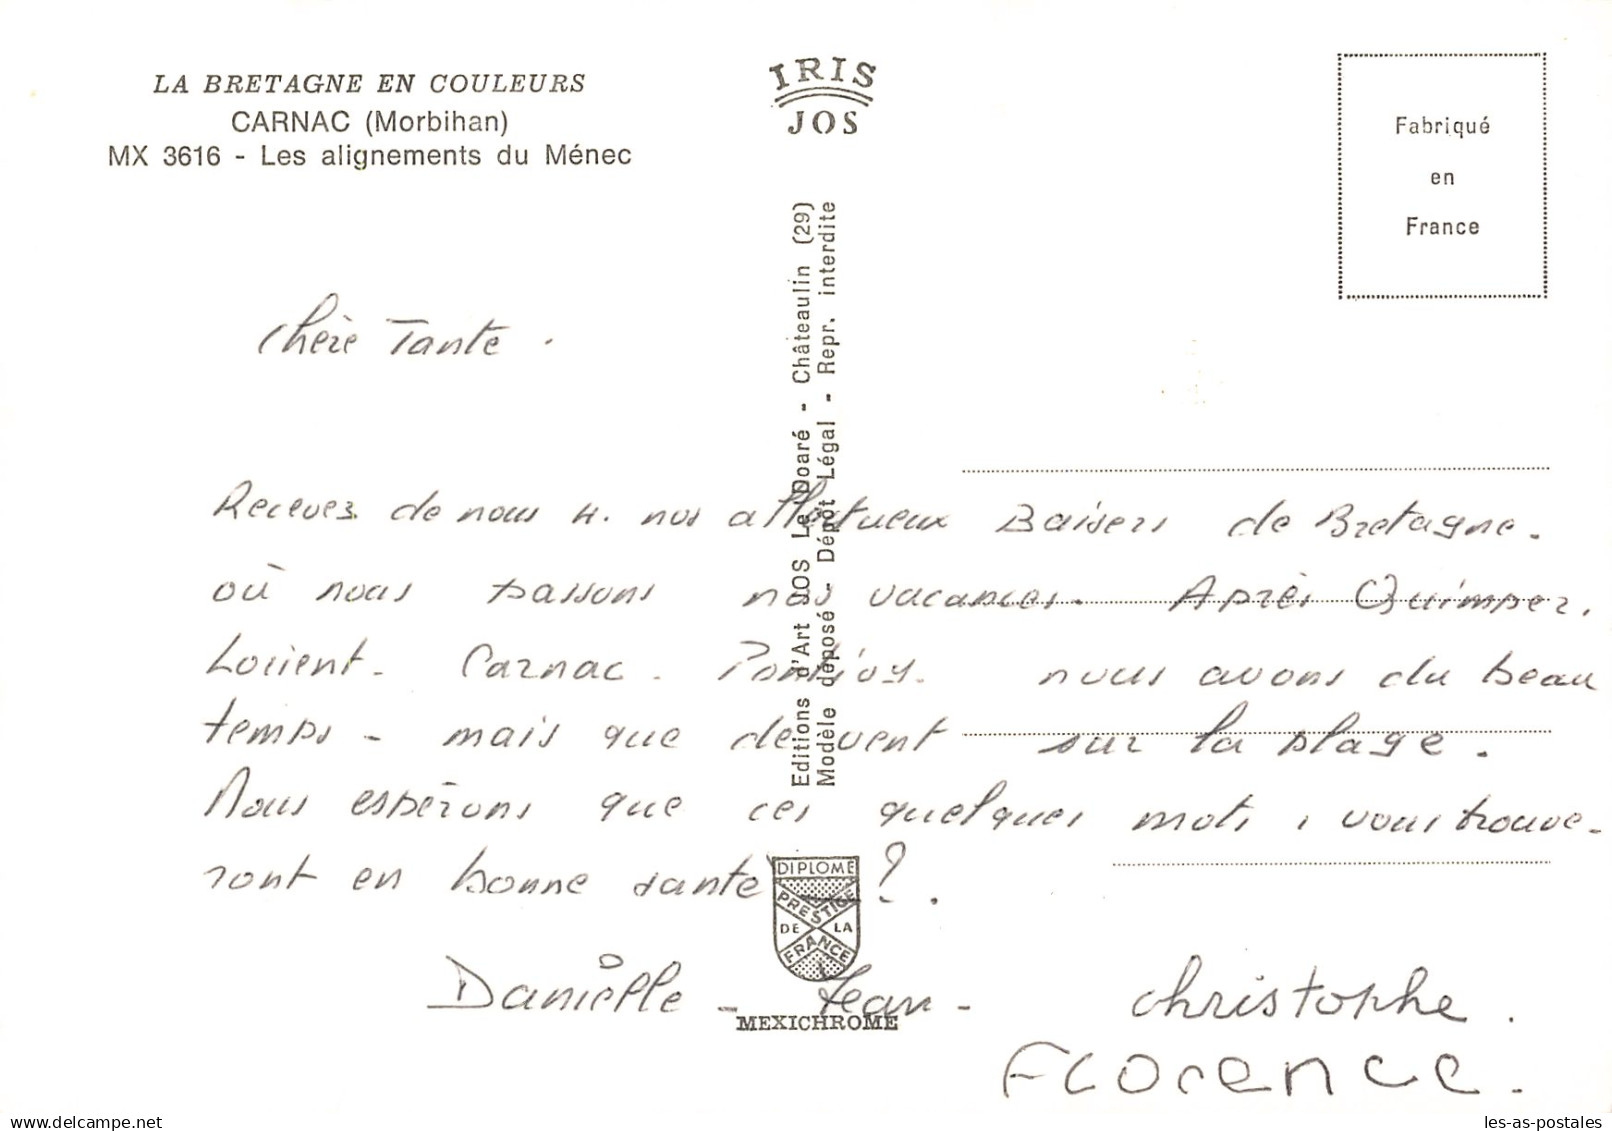 LA BRETAGNE EN COULEURS
CARNAC (Morbihan)
MX 3616 - Les alignements du Ménec
IRIS
JOS
Fabriqué
en
France
Editions d'Art JOS Le Doaré - Châteaulin (29)
Modèle déposé - Dépôt Légal - Repr. interdite
Chère Tante.
Recevez de nous 4. nos affectueux Baisers de Bretagne.
où nous passons nos vacances. Après Quimper.
Lorient. Carnac. nous avons du beau
temps - mais que de vent sur la plage.
Nous espérons que ces quelques mots, vous trouve-
ront en bonne santé ?.
DIPLOME
PRESTIGE
DE LA
FRANCE
MEXICHROME
Danièlle - Jean - Christophe.
Florence.
les-as-postales